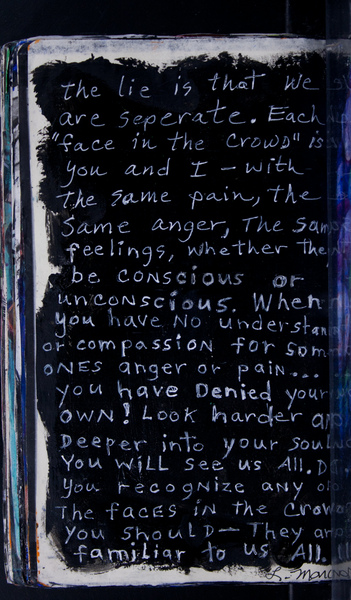 the lie is that we
are seperate. Each
"face in the CROWD" is
you and I — with
the same pain, the
same anger, The same
feelings, whether they
be conscious or
unconscious. When
you have NO understan
or compassion for som
ONES anger or pain...
you have Denied your
OWN! Look harder an
Deeper into your soul
You WILL see us All. D
you recognize any o
The faces in the Crow
you should — They are
familiar to us All.